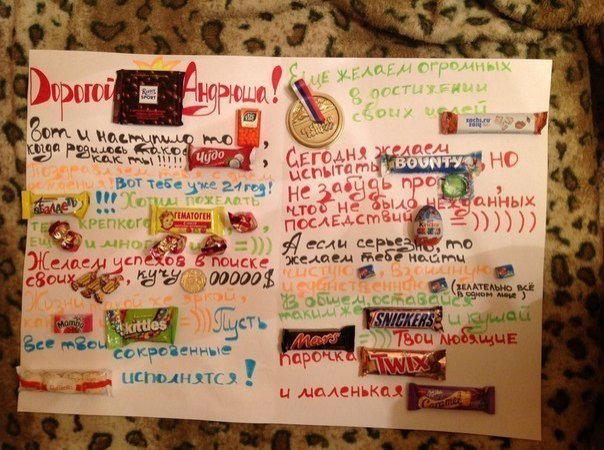 Дорогой Ritter SPORT Андрюша!
Вот и наступило то,
когда родилось такое Чудо,
как ты!!!!!
Поздравляем тебя с днём
рождения! Вот тебе уже 21 год!
!!! Хотим пожелать
крепкого ГЕМАТОГЕН
ещё и много =)))
Желаем успехов в поиске
своих , кучу 00000$
Жизни такой же яркой,
как Mamba Skittles =)))Пусть
все твои сокровенные
Raffaello исполнятся!
Ещё желаем огромных
в достижении
своих целей
sochi.ru
Сегодня желаем
испытать BOUNTY, но
не забудь про
чтоб не было нежданных
последствий Kinder =))))))
А если серьезно, то
желаем тебе найти
чистую, взаимную
и единственную (желательно всё
в одном лице)
В общем, оставайся
таким же SNICKERS и кушай
Mars =)))) Твои любящие
парочка TWIX
и маленькая Caramel